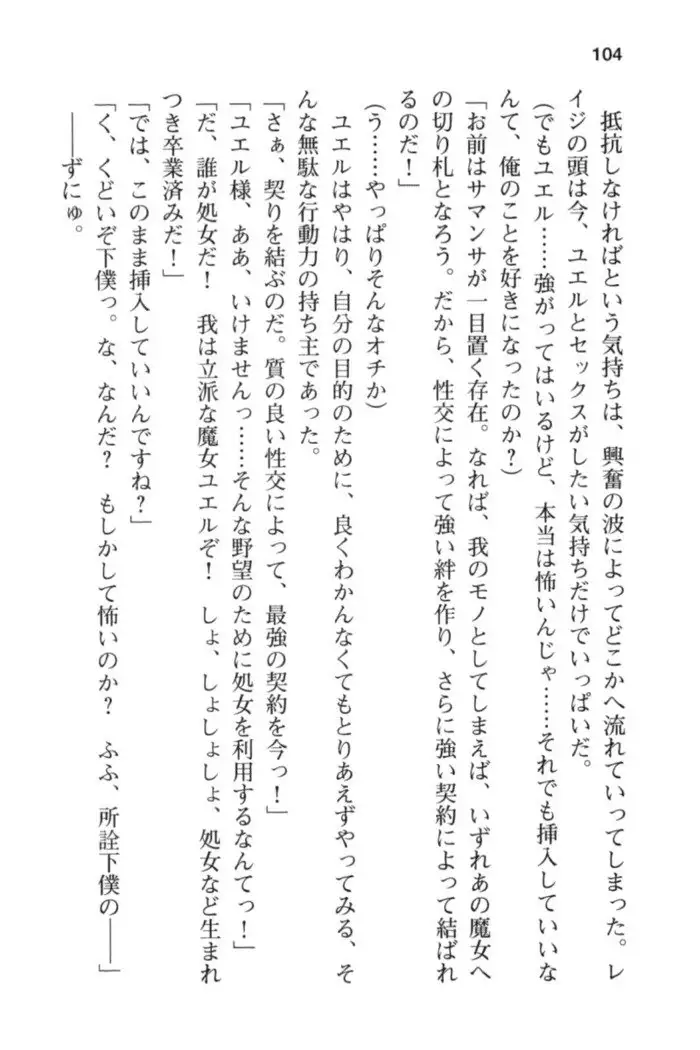 104
抵抗しなければという気持ちは、興奮の波によってどこかへ流れていってしまった。レ
イジの頭は今、ユエルとセックスがしたい気持ちだけでいっぱいだ。
(でもユエル……強がってはいるけど、本当は怖いんじゃ……それでも挿入していいな
んて、俺のことを好きになったのか?)
「お前はサマンサが一目置く存在。なれば、我のモノとしてしまえば、いずれあの魔女へ
の切り札となろう。だから、性交によって強い絆を作り、さらに強い契約によって結ばれ
るのだ!」
(う……やっぱりそんなオチか)
ユエルはやはり、自分の目的のために、良くわかんなくてもとりあえずやってみる、そ
んな無駄な行動力の持ち主であった。
「さぁ、契りを結ぶのだ。質の良い性交によって、最強の契約を今っ!」
「ユエル様、ああ、いけませんっ……そんな野望のために処女を利用するなんてっ!」
「だ、誰が処女だ! 我は立派な魔女ユエルぞ! しょ、しょしょしょ、処女など生まれ
つき卒業済みだ!」
「では、このまま挿入していいんですね?」
「く、くどいぞ下僕っ。な、なんだ? もしかして怖いのか? ふふ、所詮下僕の――」
――ずにゅ。